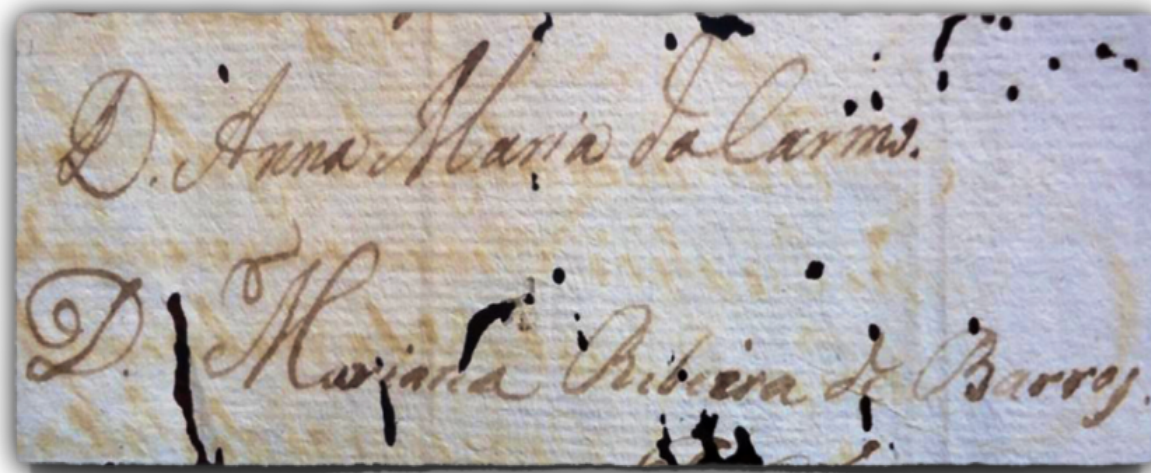 D. Anna Maria do Carmo.
D. Mariana Ribeira de Barros.